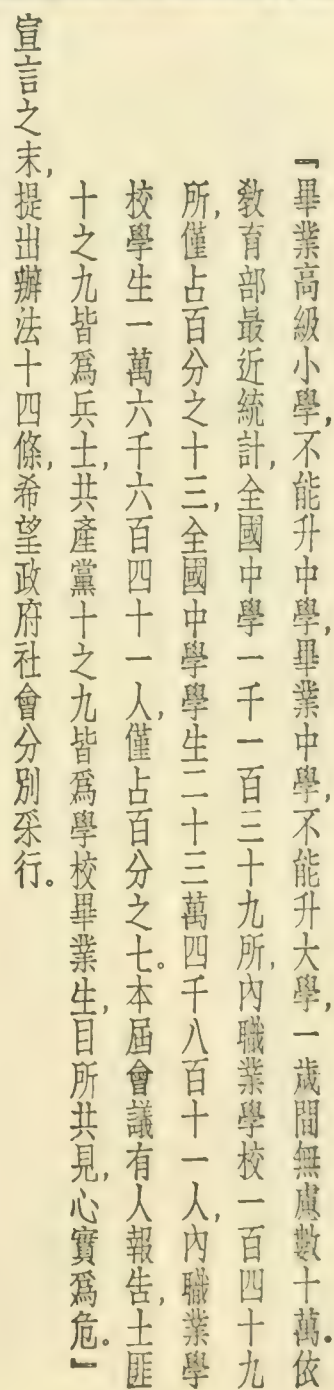 『畢業高級小學,不能升中學,畢業中學,不能升大學,一歲間無慮數十萬.依
敎育部最近統計,全國中學一千一百三十九所,內職業學校一百四十九
所,僅占百分之十三,全國中學學生二十三萬四千八百十一人,內職業學
校學生一萬六千六百四十一人,僅占百分之七。本屆會議有人報告,土匪
十之九皆爲兵士,共產黨十之九皆爲學校畢業生,目所共見,心實爲危。』
宣言之末,提出辦法十四條,希望政府社會分別采行。